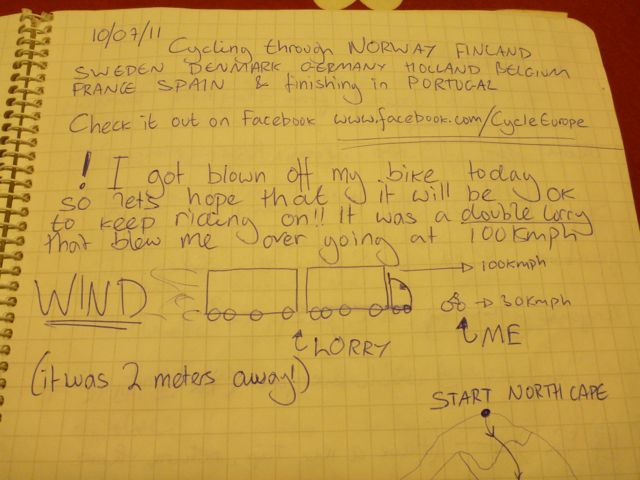 10/07/11
Cycling through NORWAY FINLAND
SWEDEN DENMARK GERMANY HOLLAND BELGIUM
FRANCE SPAIN & finishing in PORTUGAL
Check it out on Facebook www.facebook.com/CycleEurope
! I got blown off my bike today
so lets hope that it will be OK
to keep riding on!! It was a double lorry
that blew me over going at 100kmph
WIND
→ 100kmph
→ 30kmph
LORRY
ME
(it was 2 meters away!)
START NORTH CAPE